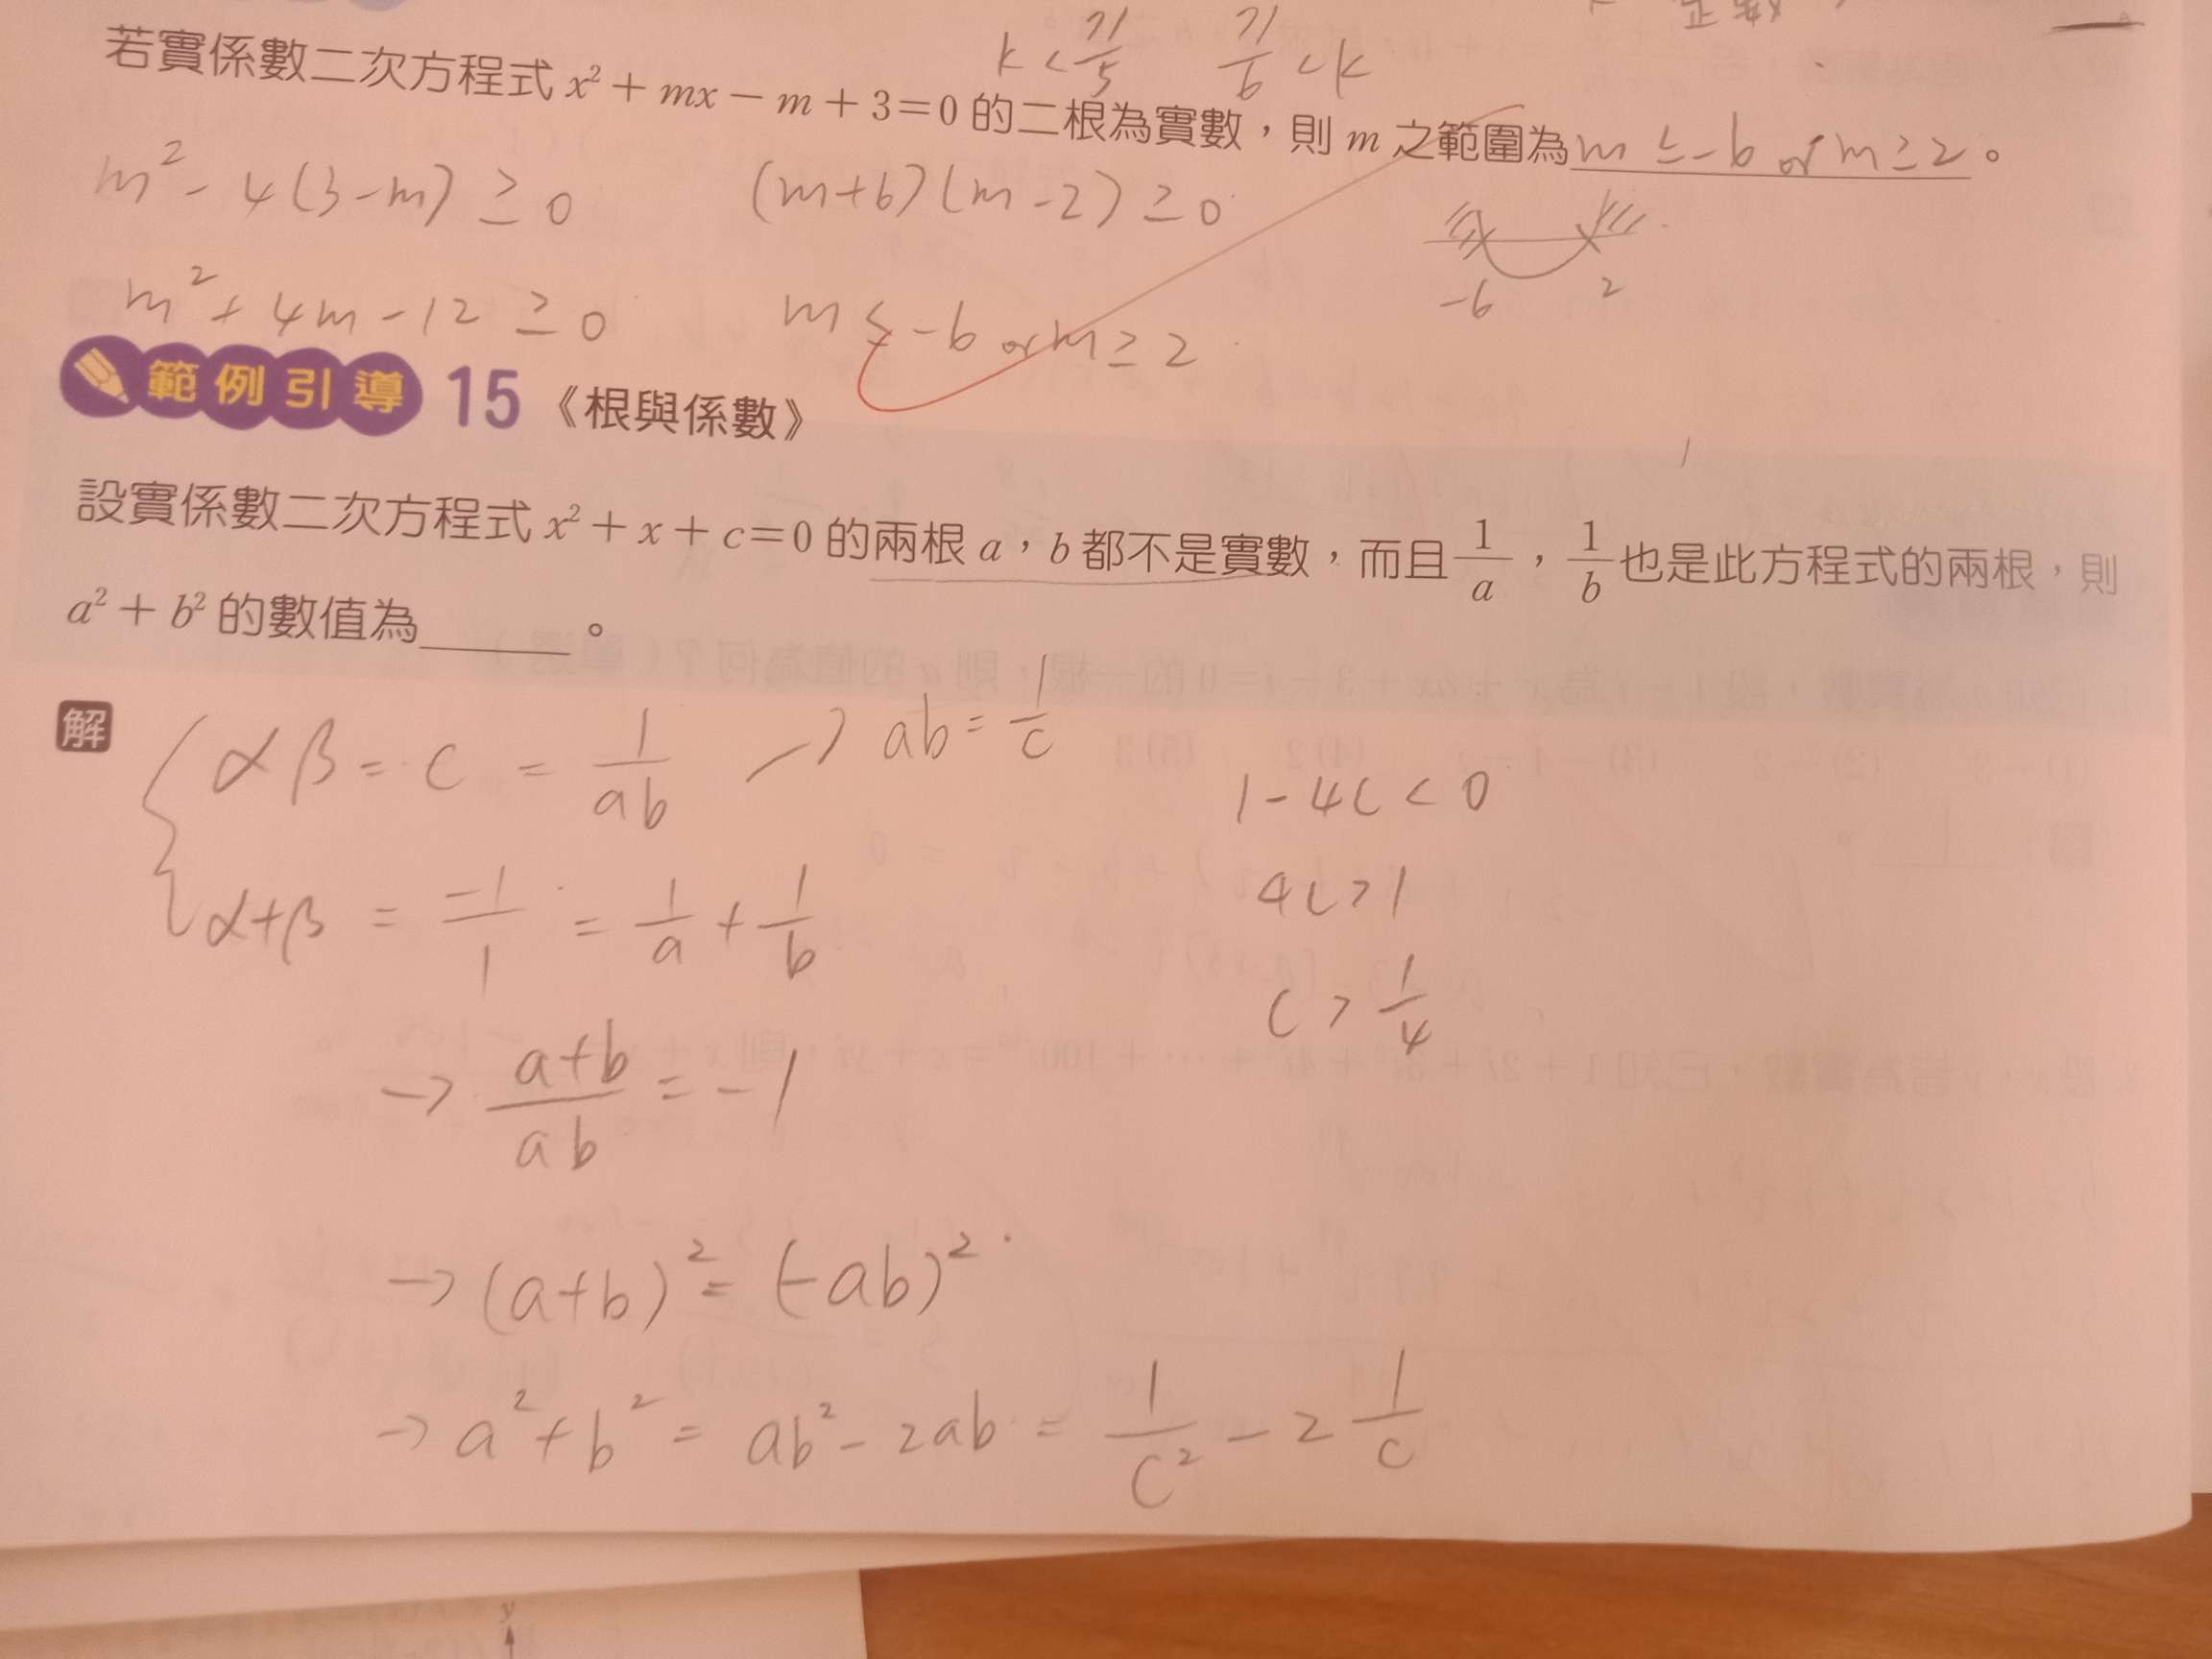 k < 21/5 21/6 < k
若實係數二次方程式 x² + mx − m + 3 = 0 的二根為實數，則 m 之範圍為 m ≤ -6 or m ≥ 2 。
m² - 4(3-m) ≥ 0 (m+6)(m-2) ≥ 0
-6 2
m² + 4m - 12 ≥ 0 m ≤ -6 or m ≥ 2
範例引導 15 《根與係數》
設實係數二次方程式 x² + x + c = 0 的兩根 a，b 都不是實數，而且 1/a，1/b 也是此方程式的兩根，則
a² + b² 的數值為______。
解
αβ = c = 1/ab → ab = 1/c
1 - 4c < 0
4c > 1
α+β = -1/1 = 1/a + 1/b
c > 1/4
→ a+b/ab = -1
→ (a+b)² = (-ab)²
→ a² + b² = ab² - 2ab = 1/c² - 2 1/c
y